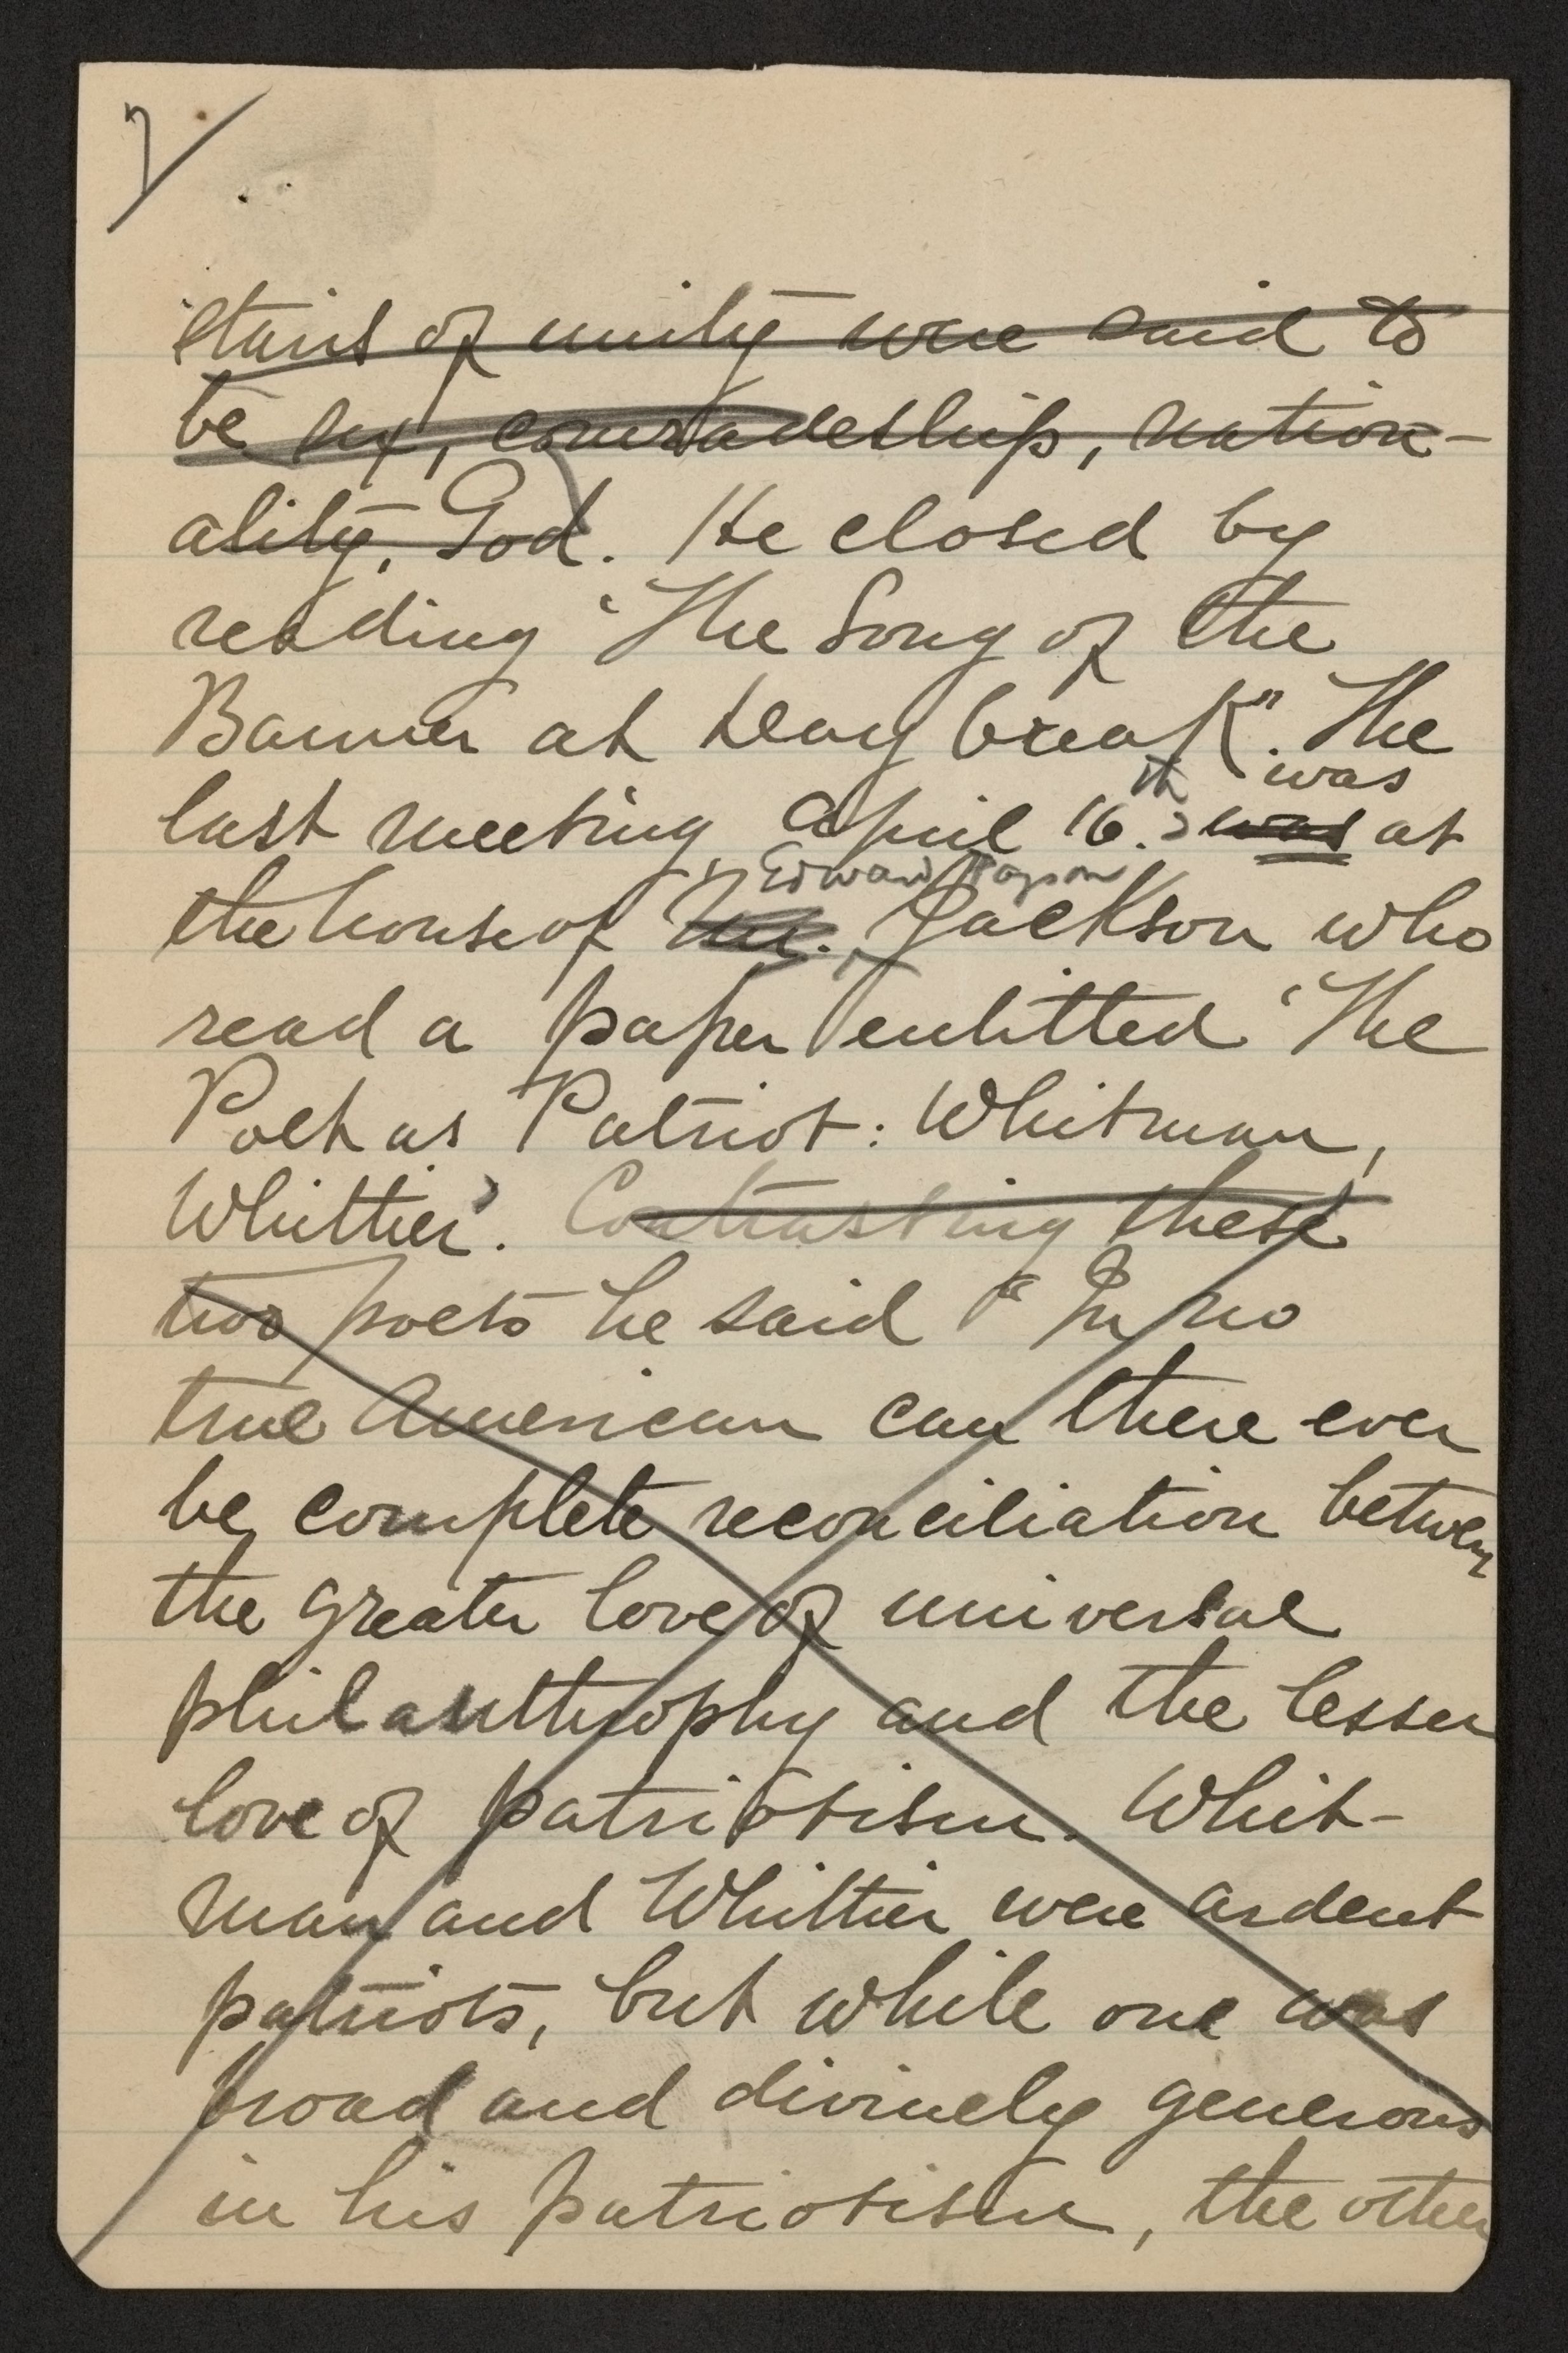 7
stairs of unity were said to
be sex, comradeship, nation-
ality, God. He closed by
reading 'The Song of the
Banner at Day break". The
th was
last meeting, April 16. was at
Edward Payson
the house of Mr. Jackson who
read a paper entitled 'The
Poet as Patriot: Whitman,
Whittier'. Contrasting these
two poets he said "In no
true American can there ever
be complete reconciliation between
the greater love of universal
philanthrophy and the lesser
love of patriotism. Whit-
man and Whittier were ardent
patriots, but while one was
broad and divinely generous
in his patriotism, the other